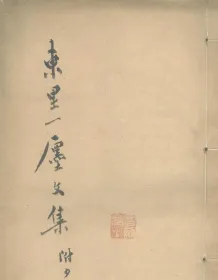 東里一廛文集 附夕